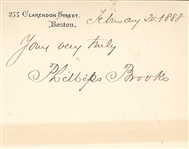 233 CLARENDON STREET. February 20. 1888
BOSTON.
Yours very truly
Phillips Brooks